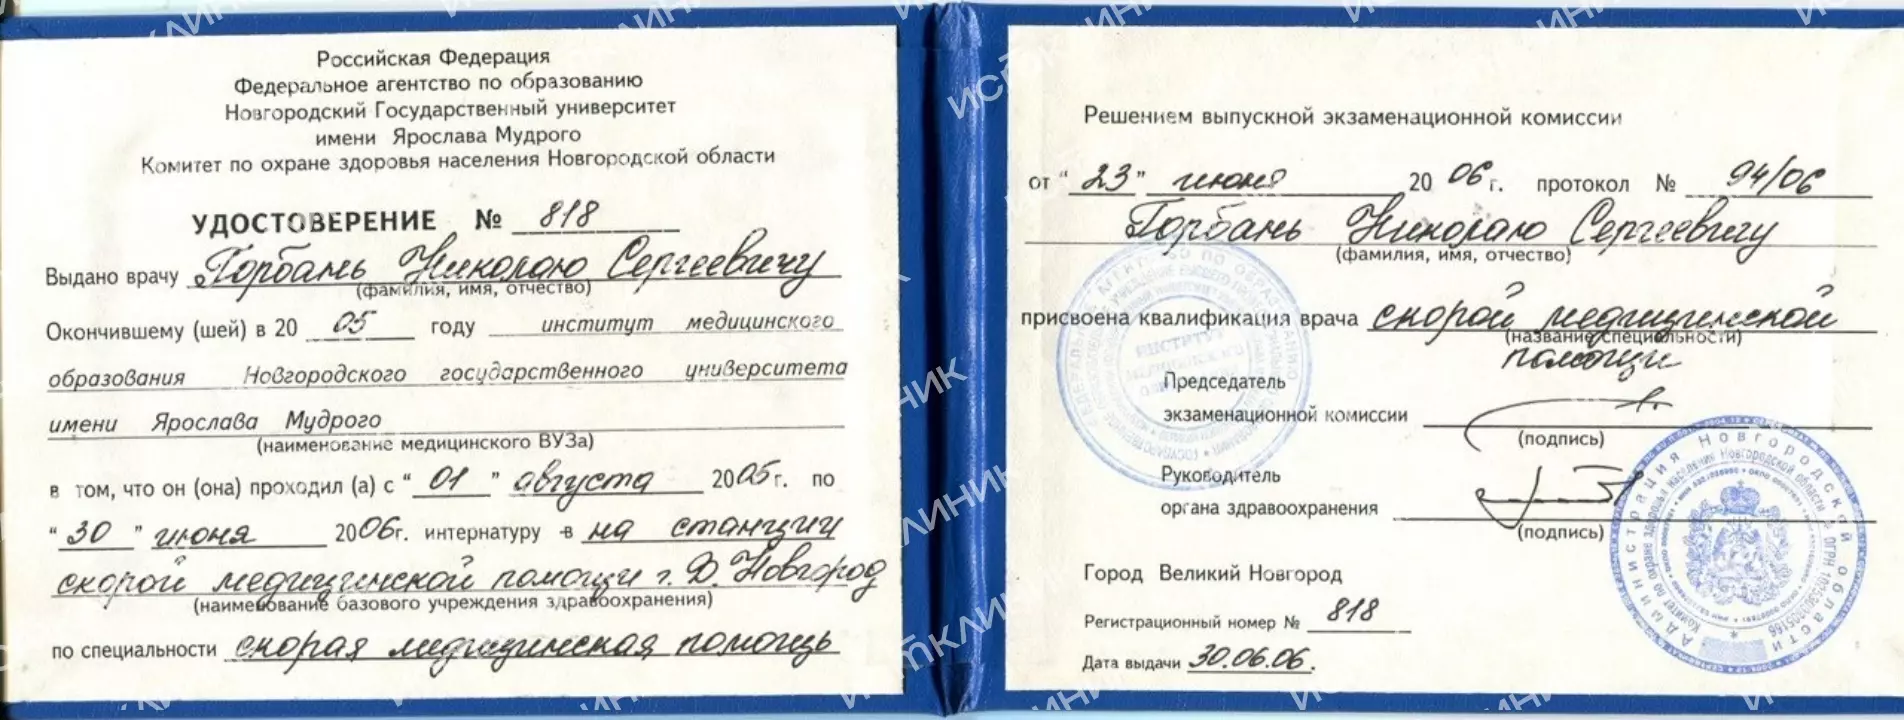 Российская Федерация
Федеральное агентство по образованию
Новгородский Государственный университет
имени Ярослава Мудрого
Комитет по охране здоровья населения Новгородской области
УДОСТОВЕРЕНИЕ № 818
Выдано врачу Горбань Николаю Сергеевичу
(фамилия, имя, отчество)
Окончившему (шей) в 20 05 году институт медицинского
образования Новгородского государственного университета
имени Ярослава Мудрого
(наименование медицинского ВУЗа)
в том, что он (она) проходил (а) с "01" августа 2005г. по
"30" июня 2006г. интернатуру в на станции
скорой медицинской помощи г. В. Новгород
(наименование базового учреждения здравоохранения)
по специальности скорая медицинская помощь
Решением выпускной экзаменационной комиссии
от "23" июня 20 06 г. протокол № 94/06
Горбань Николаю Сергеевичу
(фамилия, имя, отчество)
присвоена квалификация врача скорой медицинской
(название специальности)
помощи
Председатель
экзаменационной комиссии
(подпись)
Руководитель
органа здравоохранения
(подпись)
Город Великий Новгород
Регистрационный номер № 818
Дата выдачи 30.06.06.
Администрация Новгородской области
ИСТКЛИНИК